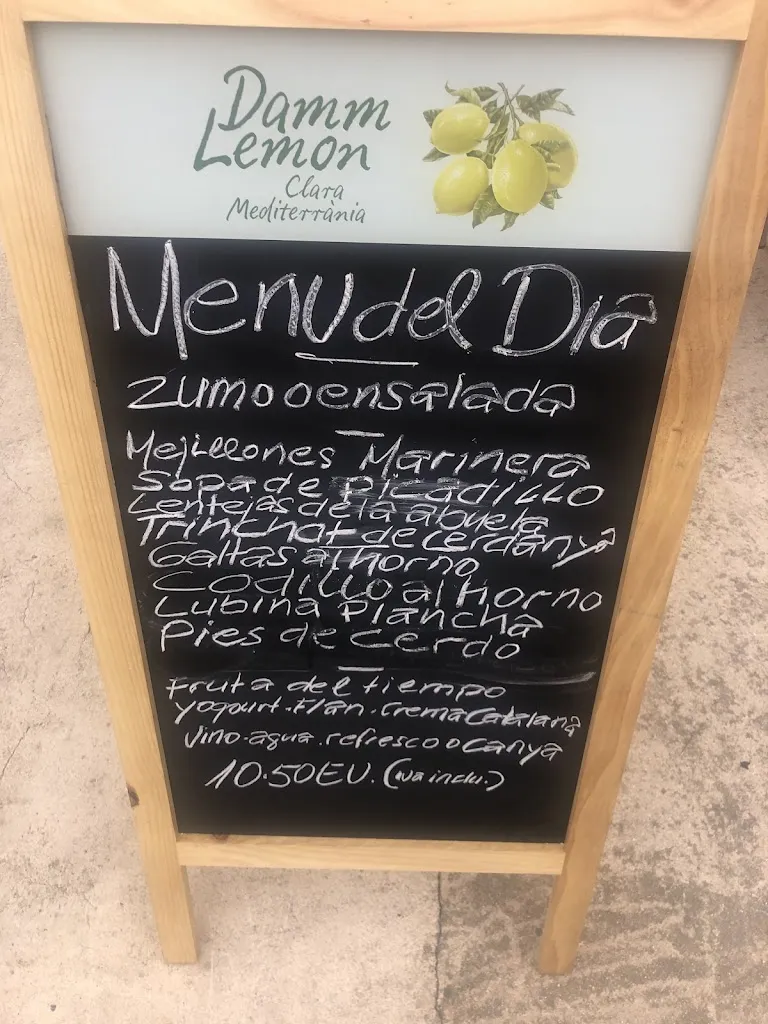 Damm
Lemon
Clara
Mediterrània
Menu del Dia
Zumo o ensalada
Mejillones Marinera
Sopa de picadillo
Lentejas de la abuela
Trinchat de cerdanya
Galtas al horno
Codillo al horno
Lubina Plancha
Pies de cerdo
Fruta del tiempo
yogourt. Flan. crema Catalana
Vino. agua. refresco o Canya
10.50 EU. (iva inclu.)